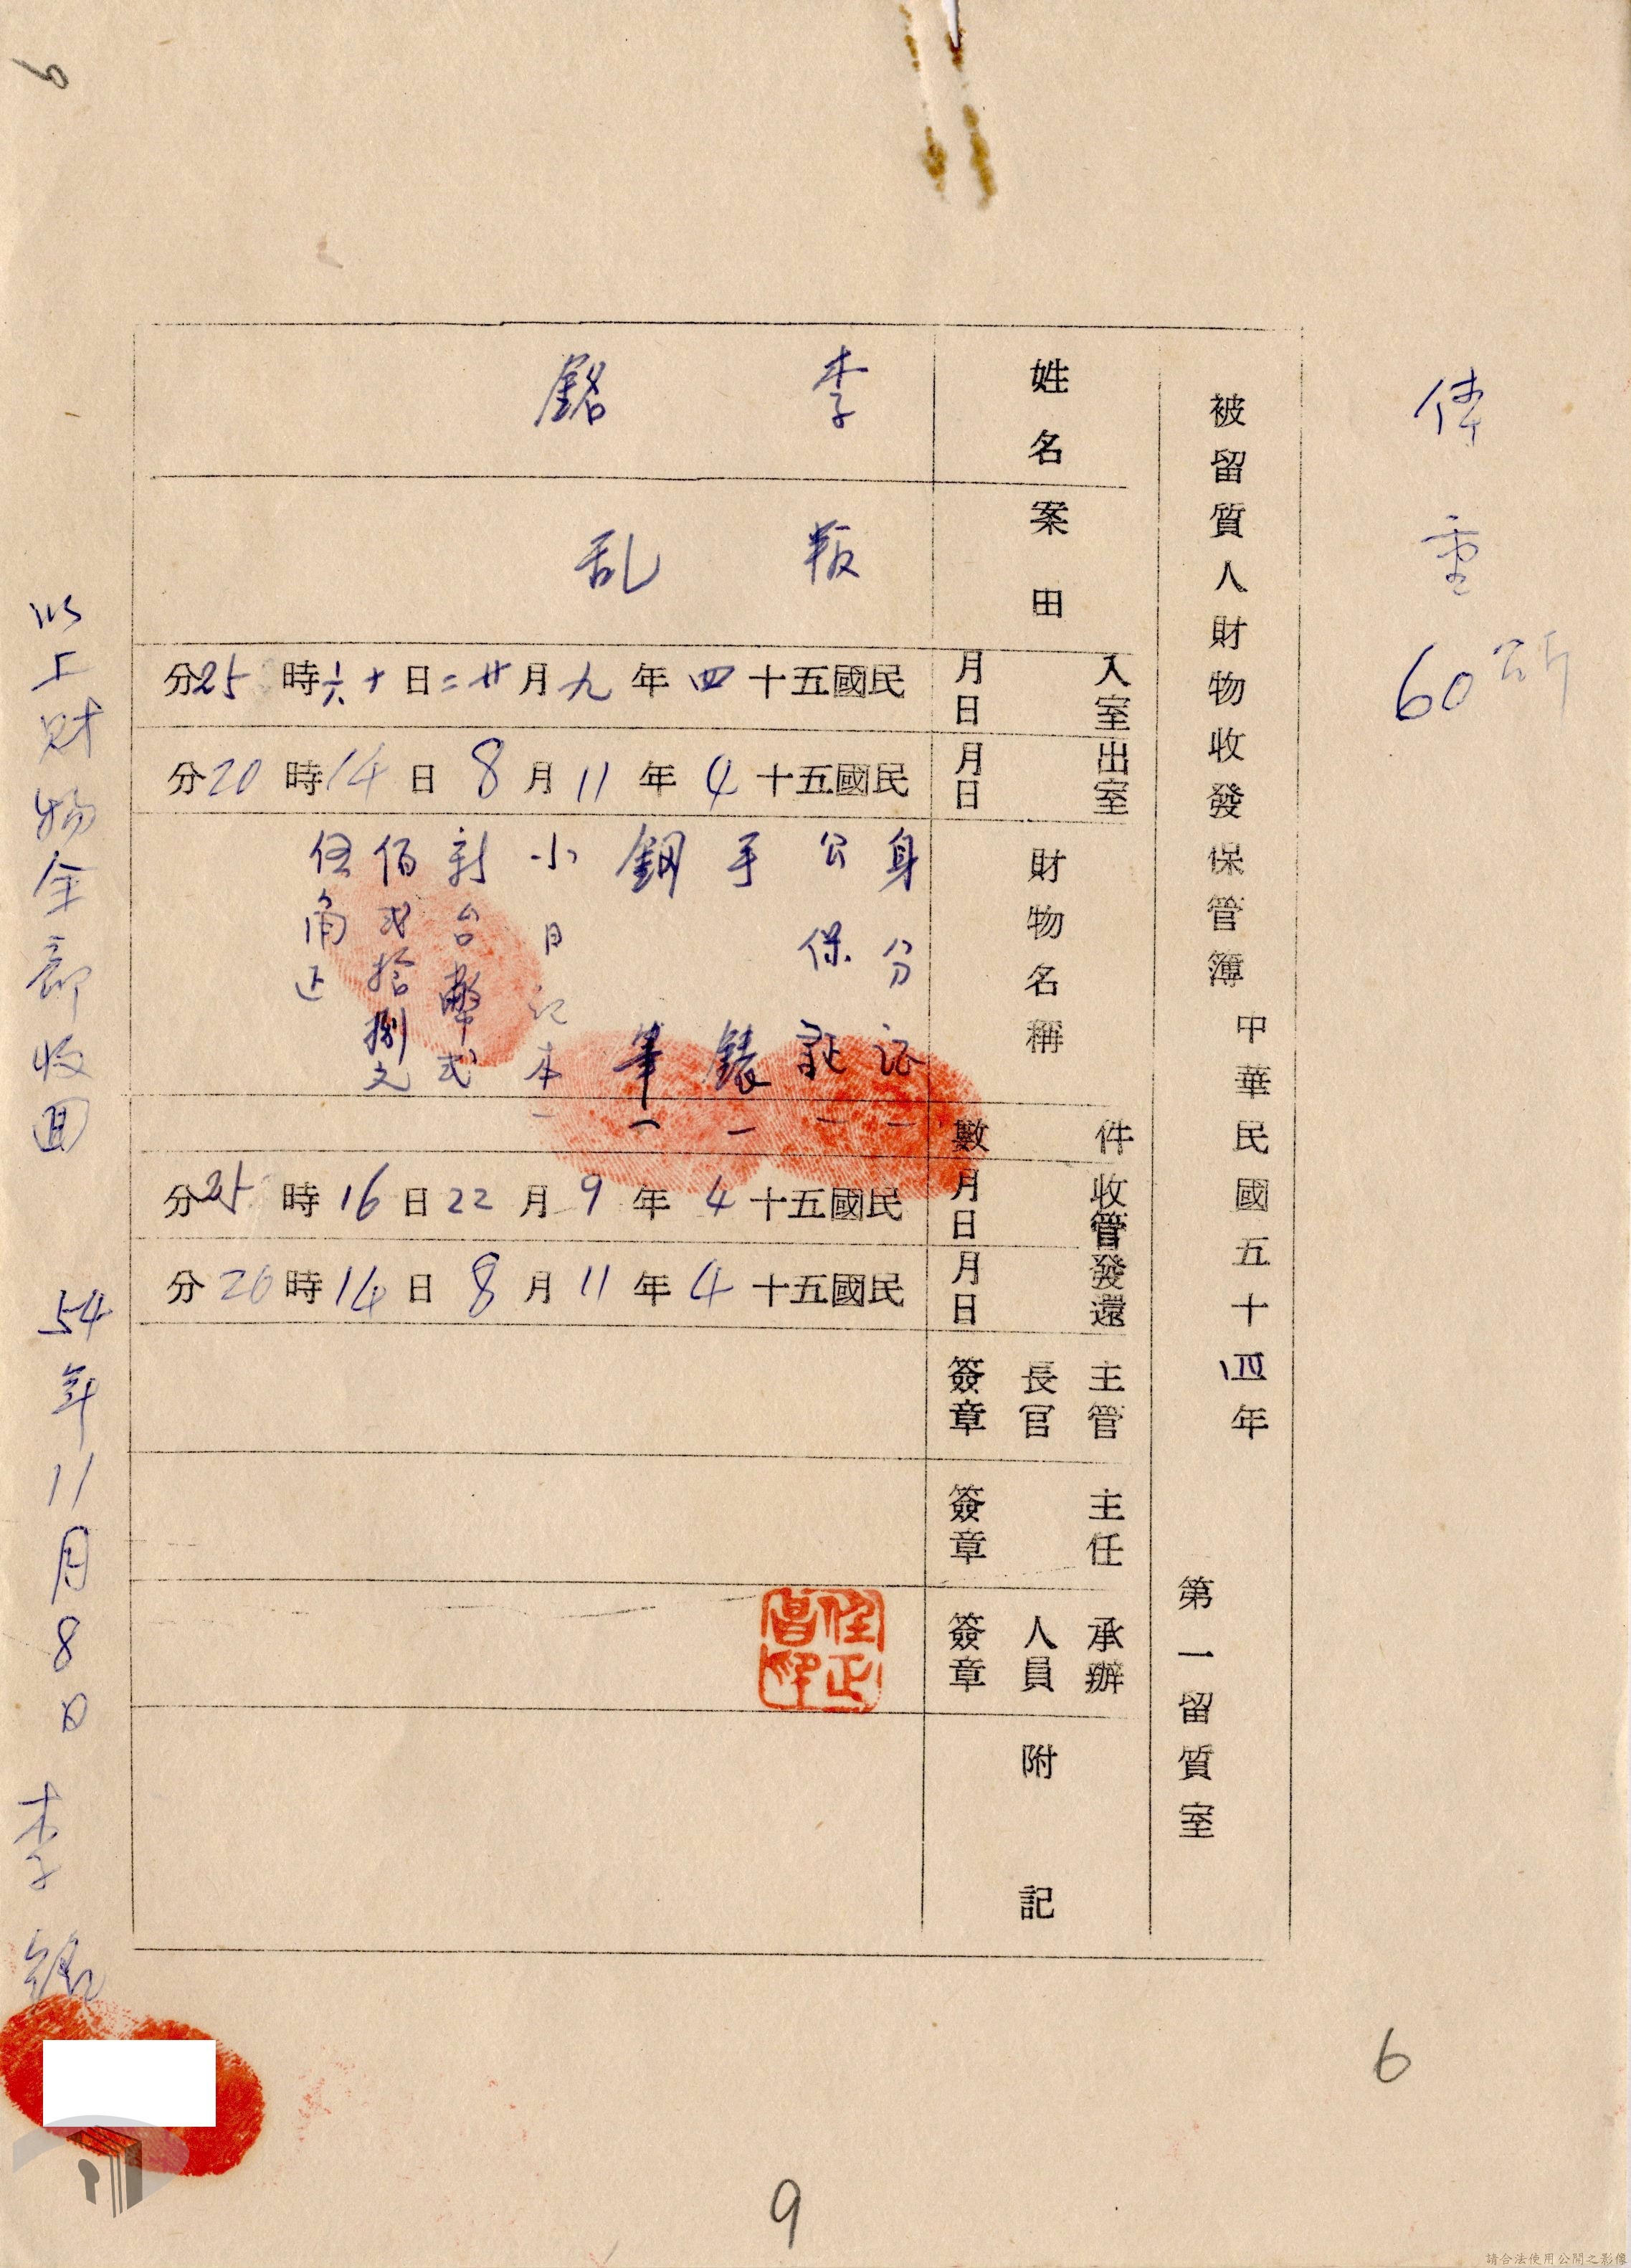 体重60公斤
被留質人財物收發保管簿
中華民國五十四年
第一留質室
姓名
李銘
案由
叛乱
入室月日
民國五十四年九月廿二日十六時25分
出室月日
民國五十4年11月8日14時20分
財物名稱
件數
身分证一
公保証一
手錶一
鋼筆一
小日记本一
新台幣弍
佰弍拾捌元
伍角正
收管月日
民國五十4年9月22日16時25分
發還月日
民國五十4年11月8日14時20分
主管長官簽章
主任簽章
承辦人員簽章
附記
以上財物全部收回 54年11月8日 李銘
6
6
9
請合法使用公開之影像